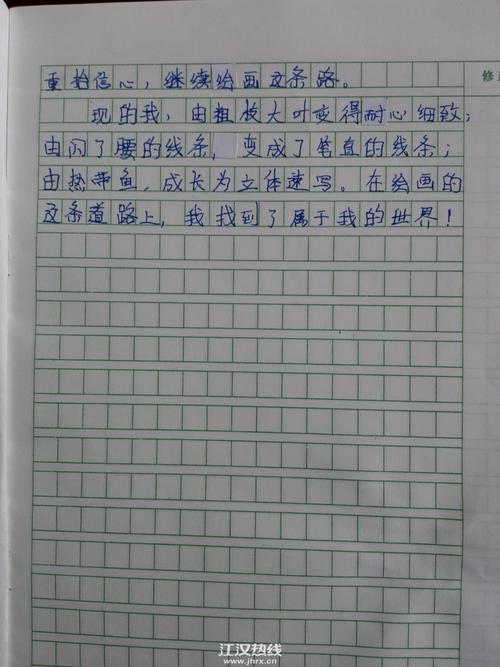 重拾信心，继续绘画这条路。
现的我，由粗枝大叶变得耐心细致；
由闪了腰的线条，变成了笔直的线条；
由热带鱼，成长为立体速写。在绘画的
这条道路上，我找到了属于我的世界！
修
江汉热线
www.jhrx.cn